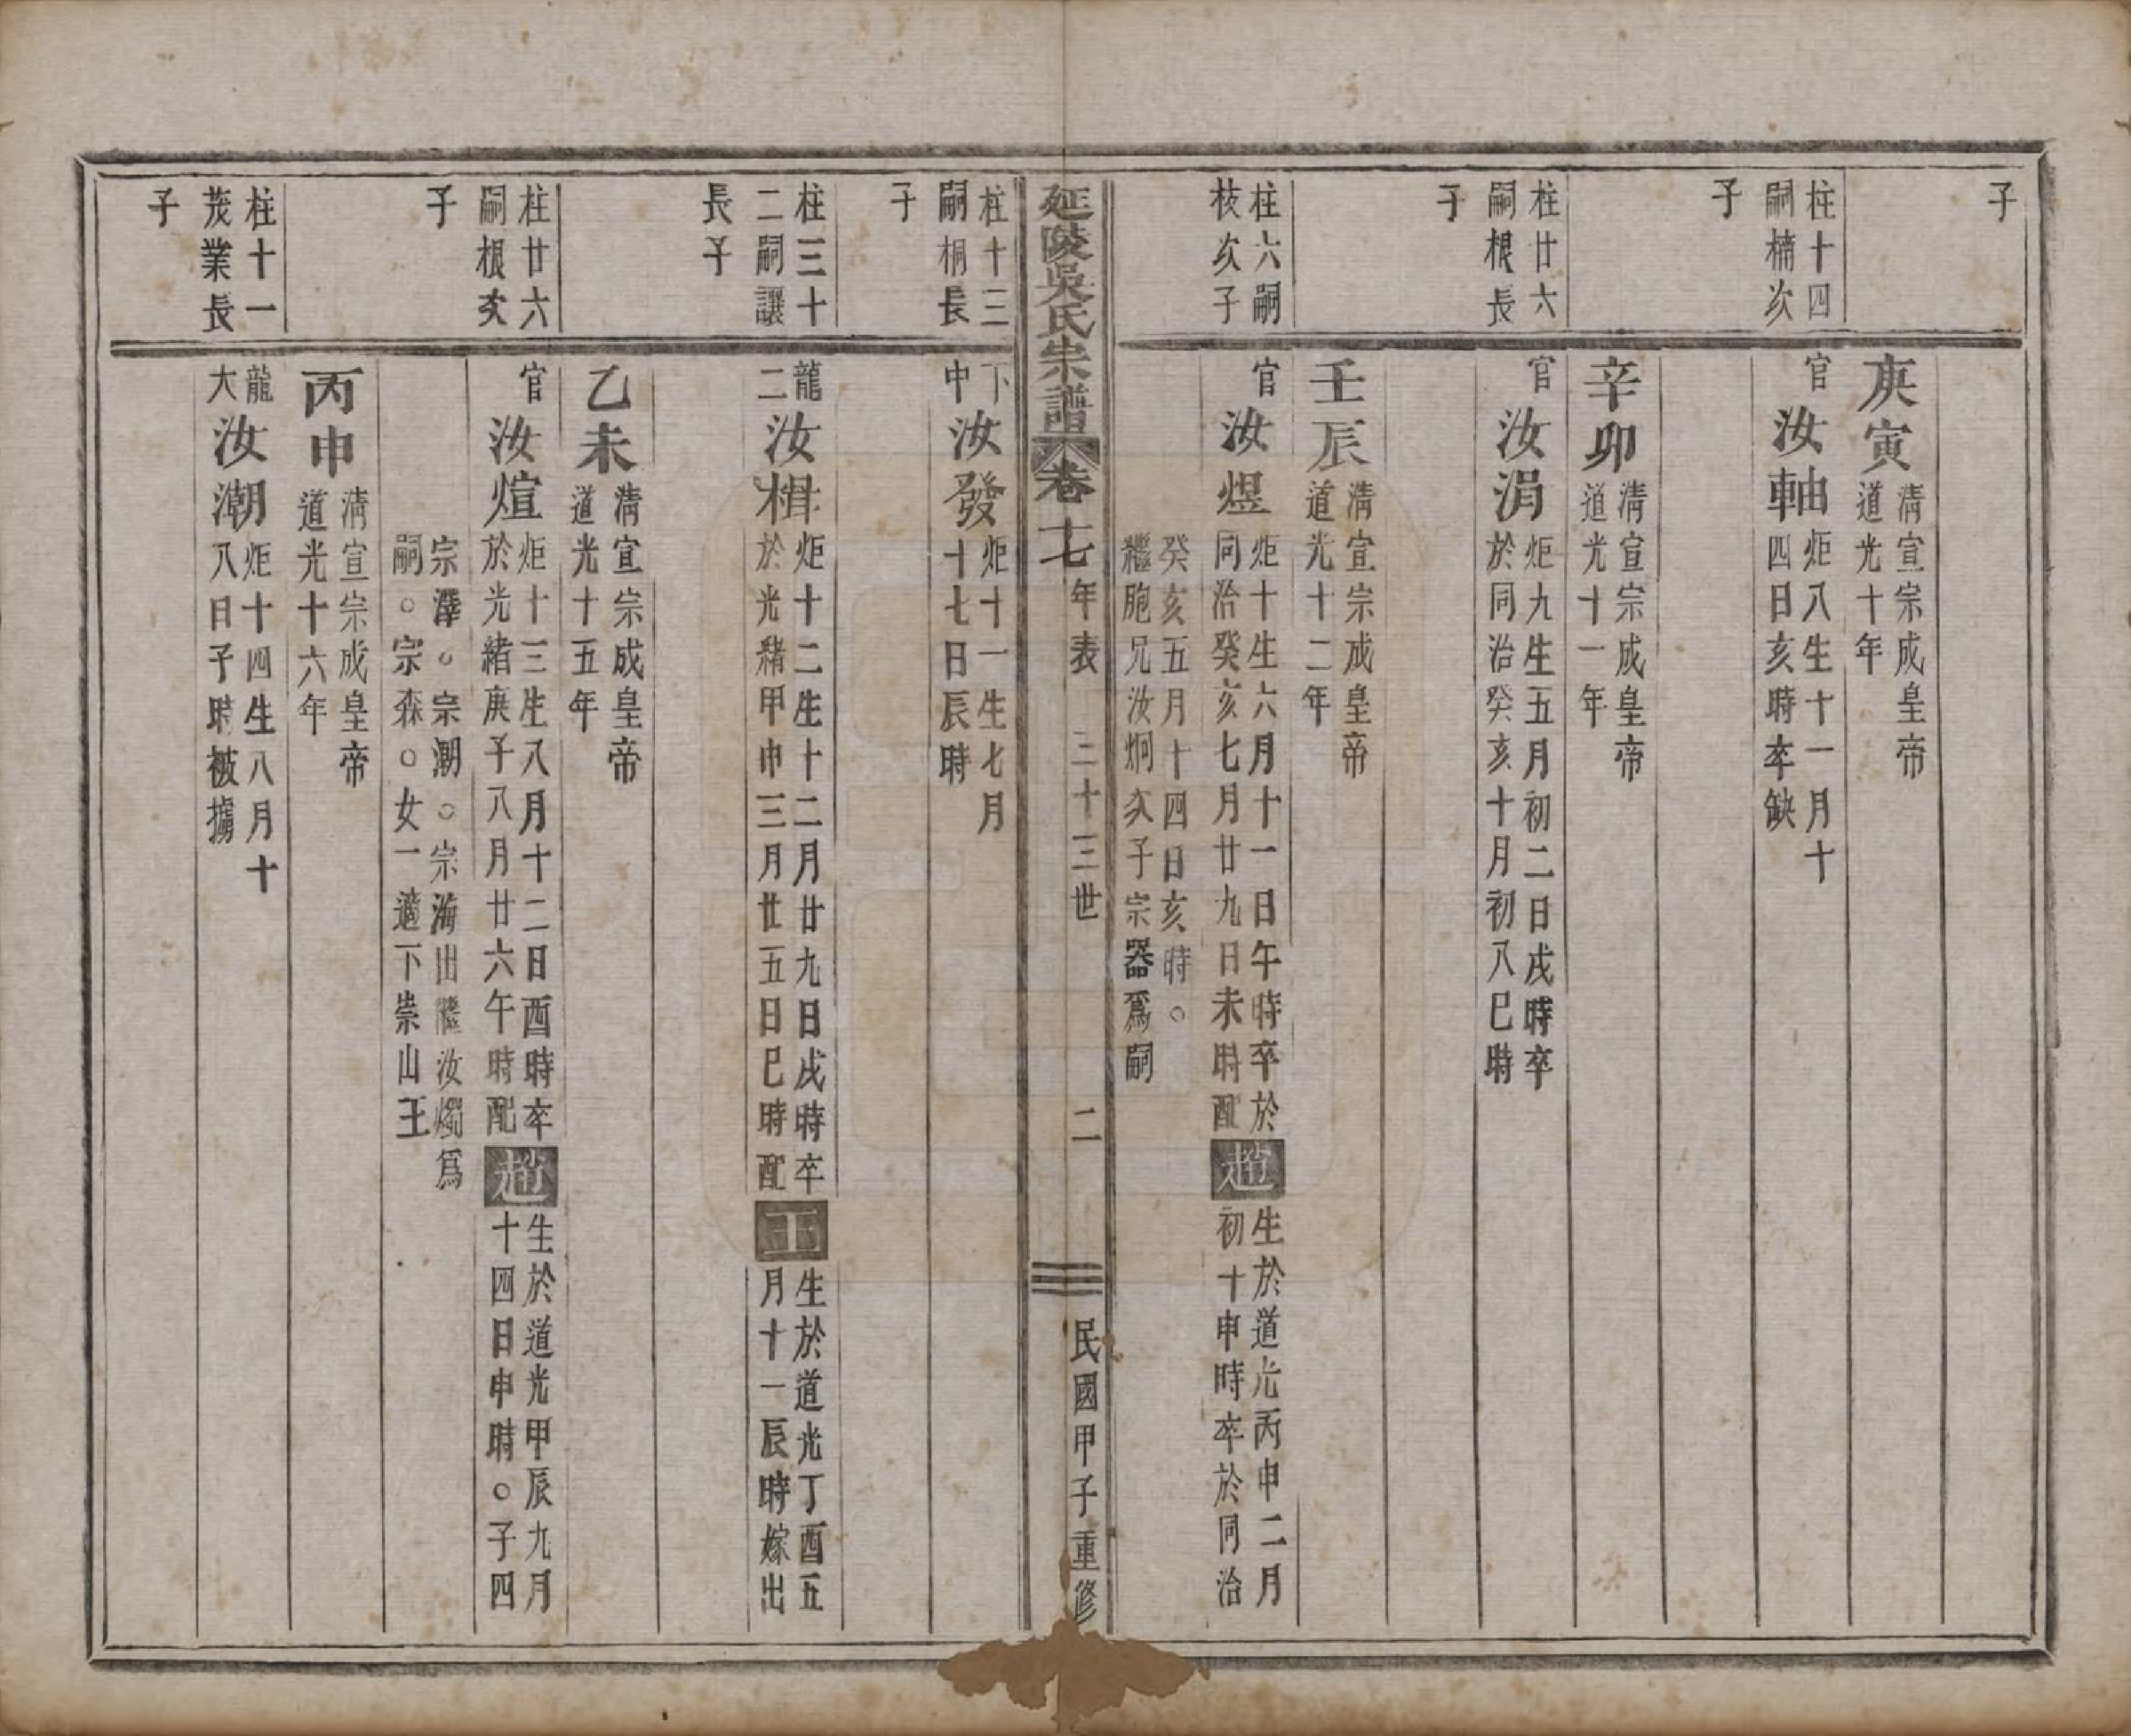 子
庚寅
清宣宗成皇帝
道光十年
柱十四
嗣楠次
子
官
汝軸
炬八生十一月十
四日亥時卒缺
辛卯
清宣宗成皇帝
道光十一年
柱廿六
嗣根長
子
官
汝涓
炬九生五月初二日戌時卒
於同治癸亥十月初八巳時
壬辰
清宣宗成皇帝
道光十二年
柱六嗣
枝次子
官
汝煜
炬十生六月十一日午時卒於
同治癸亥七月廿九日未時配
趙
生於道光丙申二月
初十申時卒於同治
癸亥五月十四日亥時○
繼胞兄汝炯次子宗器爲嗣
延陵吳氏宗譜
卷十七
年表
三十三世
二
民國甲子重修
柱十三
嗣桐長
子
下
中
汝發
炬十一生七月
十七日辰時
柱三十
二嗣讓
長子
龍
二
汝楫
炬十二生十二月廿九日戌時卒
於光緒甲申三月廿五日巳時配
王
生於道光丁酉五
月十一辰時嫁出
乙未
清宣宗成皇帝
道光十五年
柱廿六
嗣根次
子
官
汝煊
炬十三生八月十二日酉時卒
於光緒庚子八月廿六午時配
趙
生於道光甲辰九月
十四日申時○子四
宗澤○宗潮○宗海出繼汝燭爲
嗣○宗森○女一適下崇山王
丙申
清宣宗成皇帝
道光十六年
柱十一
茂業長
子
龍
大
汝潮
炬十四生八月十
八日子時被擄